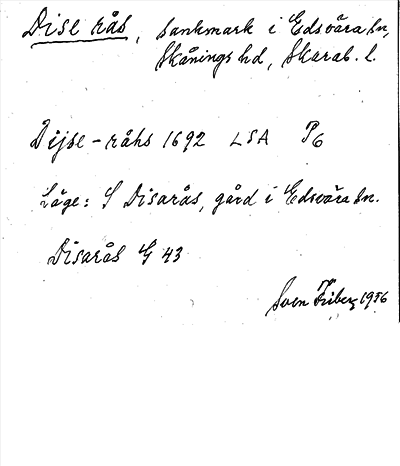 Dise rås, sankmark i Edsvära sn,
Skånings hd, Skarab. l.
Dijse-råhs 1692 LSA P6
Läge: S Disarås, gård i Edsvära sn.
Disarås G 43
Sven Friberg 1956